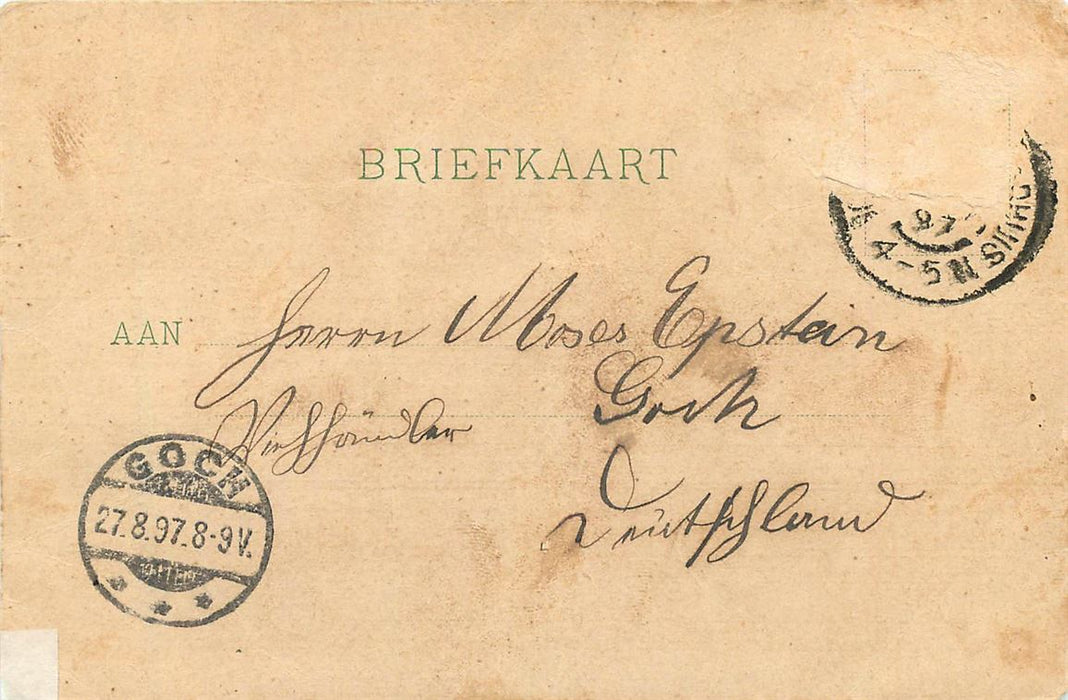 BRIEFKAART
97
4-5N
AAN Herrn Moses Epstein
Goch
Viehhändler
Deutschland
GOCH
27.8.97.8-9V.